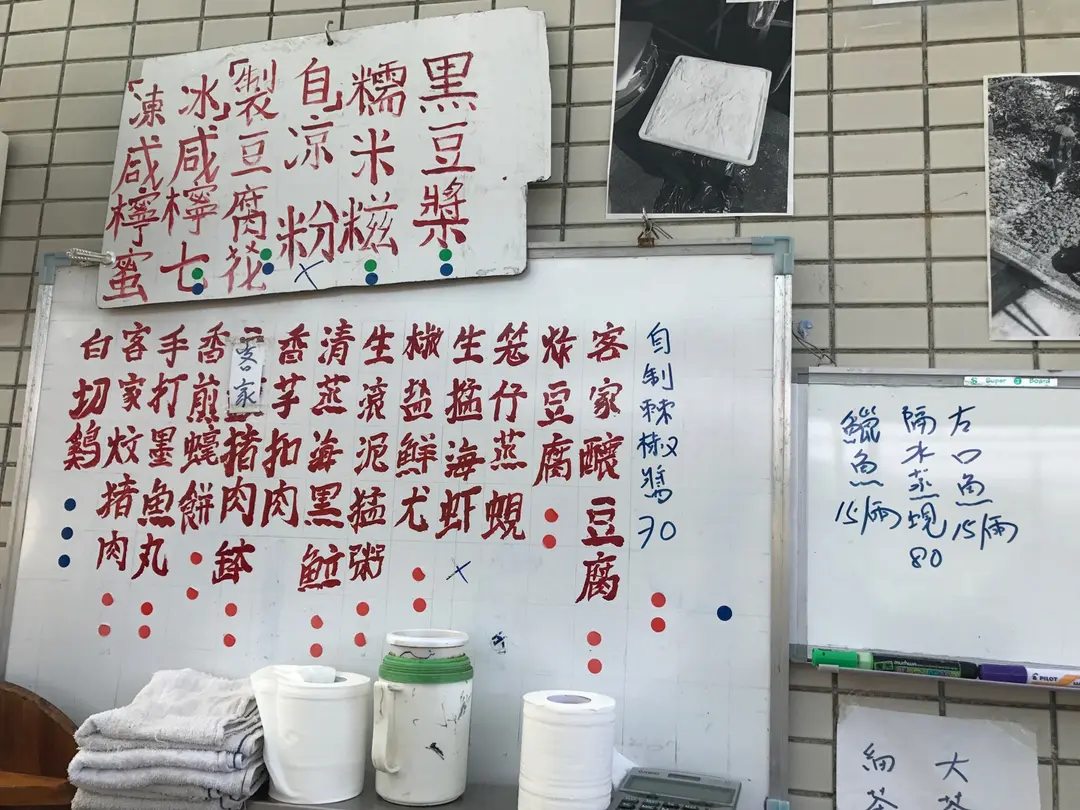 黑豆漿
糯米糍
自」涼粉
「製豆腐花
冰」咸檸七
「凍咸檸蜜
自制棘椒醬 30
客家釀豆腐
炸豆腐
笼仔蒸蜆
生猛海虾
椒盐鮮尤
生滾泥猛粥
清蒸海黑䱽
香芋扣肉
客家猪肉缽
香煎蠔餅
手打墨魚丸
客家炆猪肉
白切鷄
Super Board
左口魚 15/兩
隔水蒸蜆 80
鱲魚 15/兩
PILOT
大
細